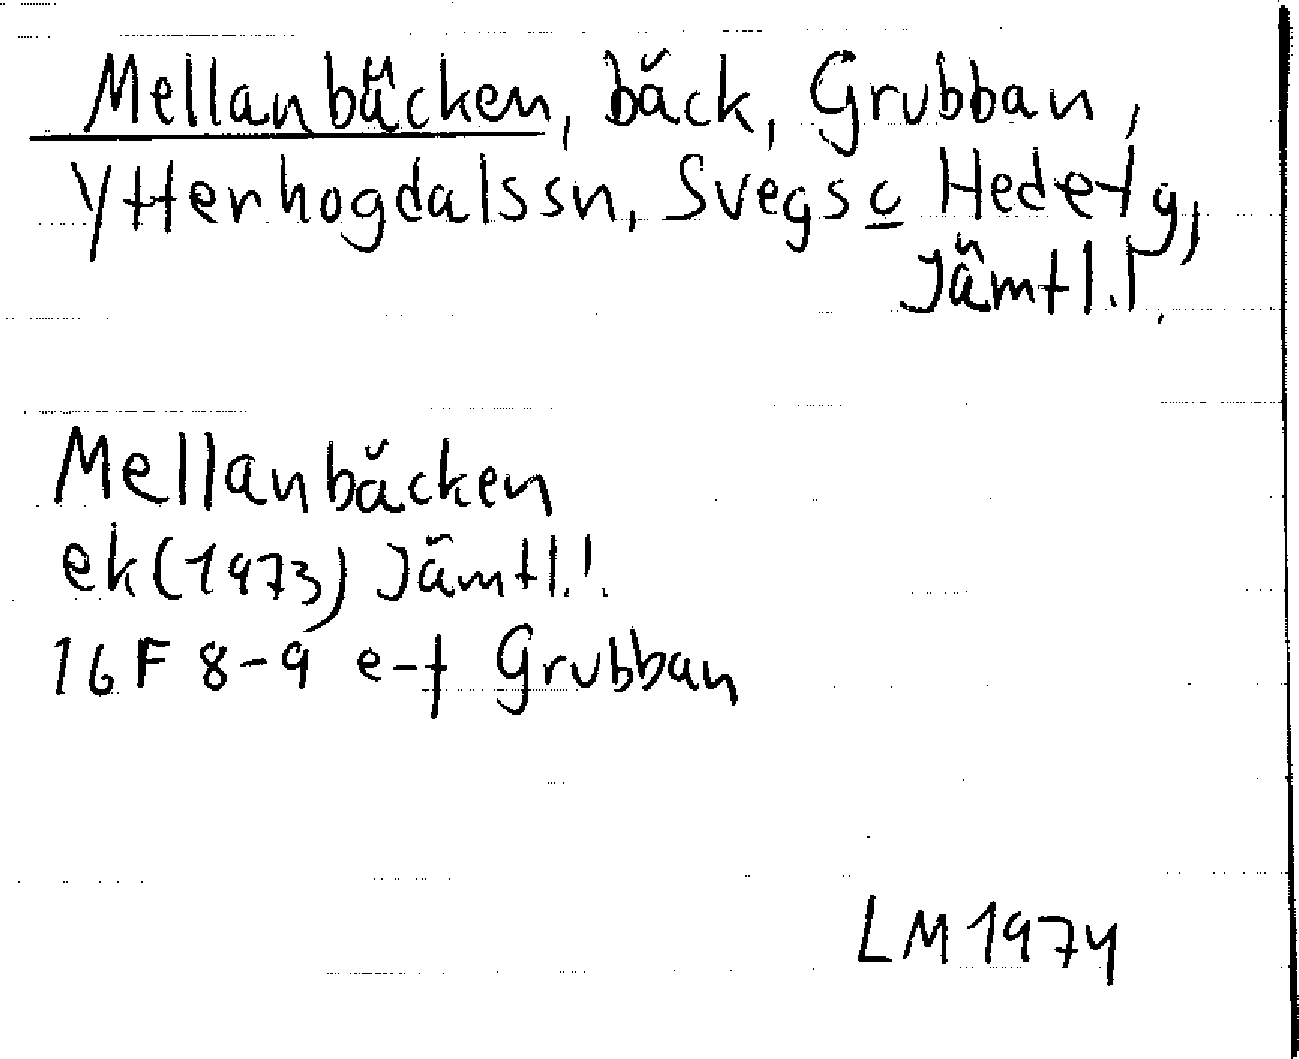 Mellanbäcken, bäck, Grubban,
Ytterhogdalssn, Svegs o Hedetg,
Jämtl.l.
Mellanbäcken
ek(1973) Jämtl.l.
16F 8-9 e-f Grubban
LM 1974